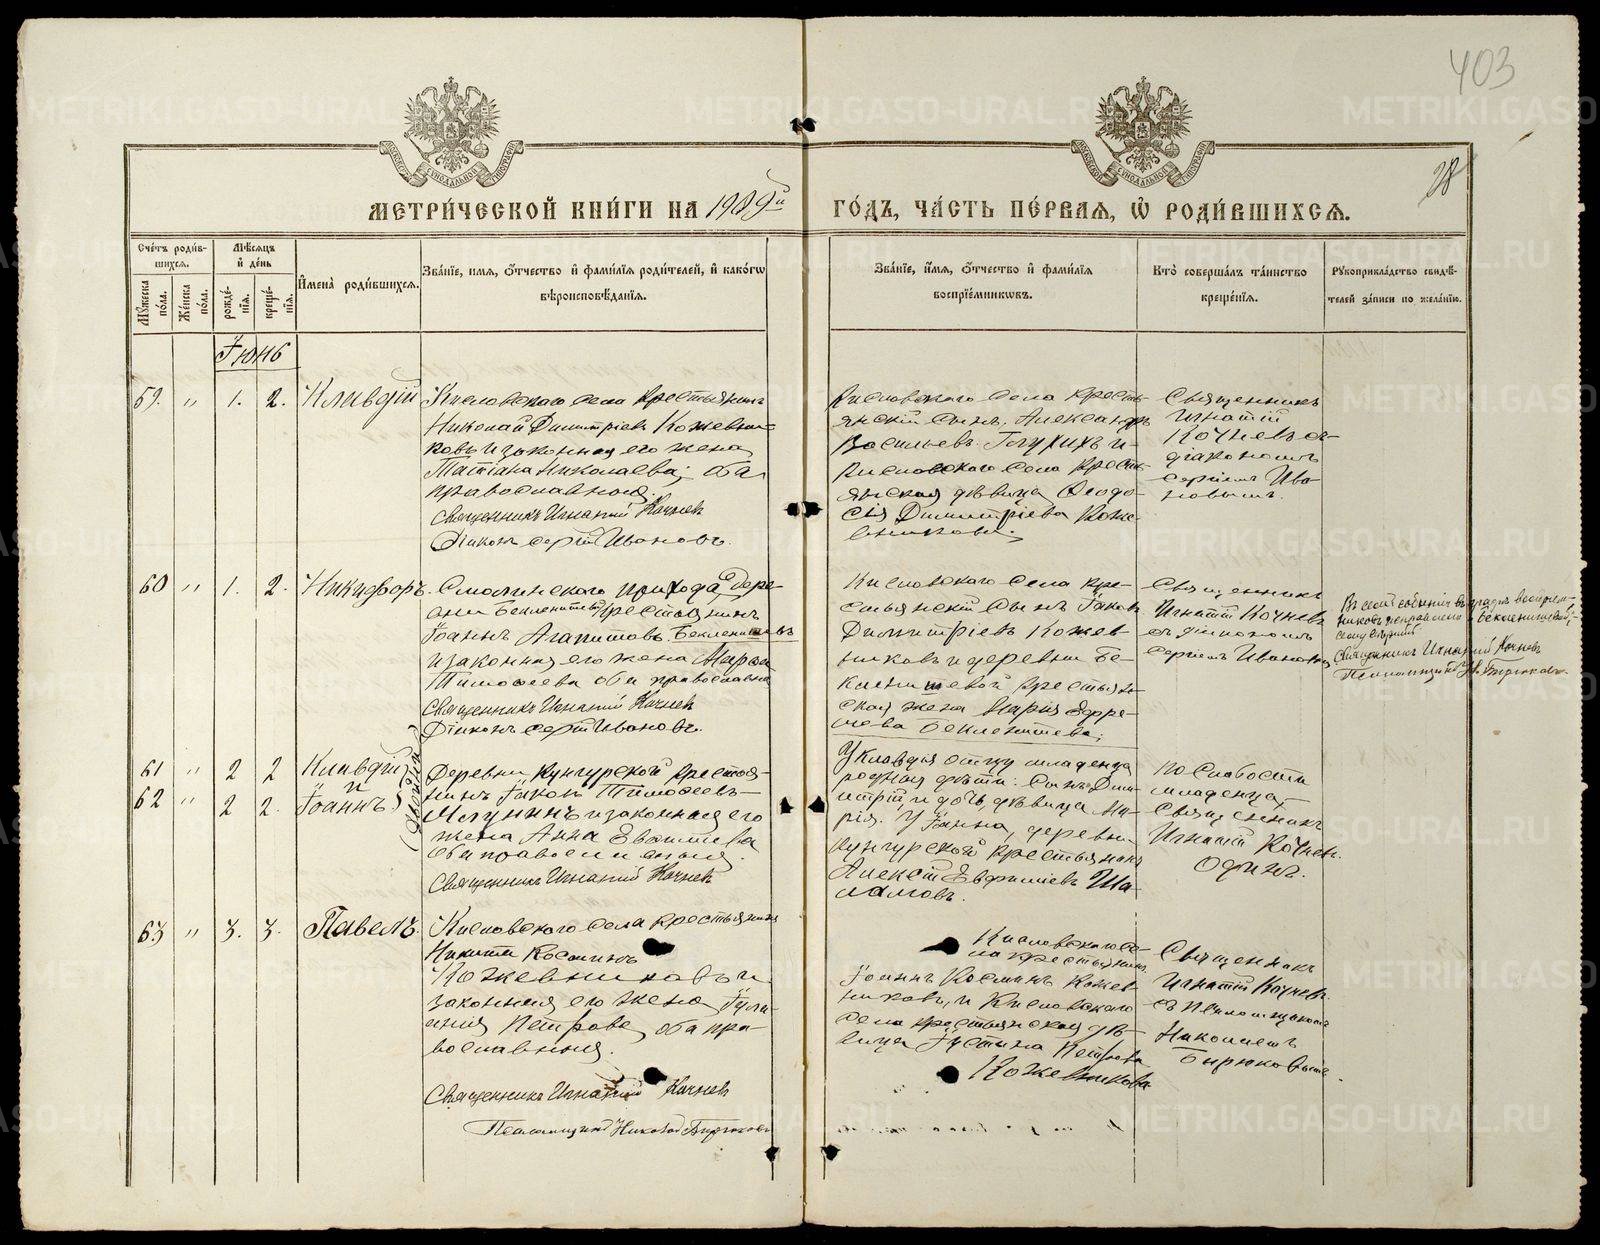 403
28
МЕТРИ́ЧЕСКОЙ КНИ́ГИ НА 1909й ГО́ДЪ, ЧА́СТЬ ПЕ́РВАЯ, Ѡ҆ РОДИ́ВШИХСЯ.
Сче́тъ роди́вшихся.
Му́жеска по́ла.
Же́нска по́ла.
Мѣ́сяцъ и҆ де́нь
рожде́нїя.
креще́нїя.
И҆мена̀ роди́вшихся.
Зва́нїе, и҆мя, ѻ҆́тчество и҆ фами́лїя роди́телей, и҆ како́гѡ
вѣроисповѣ́данїя.
Зва́нїе, и҆́мя, ѻ҆́тчество и҆ фами́лїя
воспрїе́мникѡвъ.
Кто̀ соверша́лъ та́инство
креще́нїя.
Рꙋкоприкла́дство свидѣ́-
телей за́писи по жела́нїю.
Іюнь
59. " 1. 2. Клавдій
Кисловскаго села крестьянинъ
Николай Димитріевъ Кожевни-
ковъ и законная его жена
Татіана Николаева; оба
православные.
Священникъ Игнатій Кочнев
Діаконъ Сергій Ивановъ.
Кисловскаго села кресть-
янскій сынъ, Александръ
Васильевъ Глухихъ и
Кисловскаго села кресть-
янская дѣвица Ѳеодо-
сія Димитріева Коже-
вникова.
Священникъ
Игнатій
Кочневъ съ
діакономъ
Сергіемъ Ива-
новымъ.
60 " 1. 2. Никифоръ.
Смолинскаго прихода дере-
вни Бекленищевой крестьянинъ
Іоаннъ Агапитовъ Бекленищевъ
и законная его жена Марѳа
Тимоѳеева оба православные
Священникъ Игнатій Кочнев
Діаконъ Сергій Ивановъ.
Кисловскаго села кре-
стьянскій сынъ Іаковъ
Димитріевъ Кожев-
никовъ и деревни Бе-
кленищевой крестьян-
ская жена Марія Ефре-
мова Бекленищева;
Священникъ
Игнатій Кочневъ
съ діакономъ
Сергіемъ Ивановымъ
Въ сей событіи въ графѣ воспріем-
никовъ исправлено "Бекленищевой",
Священникъ Игнатій Кочнев
Псаломщикъ Н. Бирюков.
61 " 2 2 Клавдій
и
62 " 2 2. Іоаннъ
(двойни)
Деревни Кунгурской крестья-
нинъ Іаковъ Тимоѳеевъ
и законная его
жена Анна
оба православные.
Священникъ Игнатій Кочнев
У Клавдія отцу младенца
родныя дѣти: сынъ Дим-
итрій и дочь, дѣвица Ма-
рія. У Іоанна, деревни
Кунгурской крестьянинъ
Алексій Евфиміевъ Ша-
ламовъ.
По слабости
младенца,
Священникъ
Игнатій Кочнев.
одинъ.
63 " 3. 3. Павелъ.
Кисловскаго села крестьянинъ
Никита Косминъ
Кожевниковъ и
законная его жена Іули-
анія Петрова, оба пра-
вославные.
Священникъ Игнатій Кочнев
Псаломщикъ Николай Бирюковъ
Кисловскаго се-
ла крестьянинъ
Іоаннъ Косминъ Кожев-
никовъ, и Кисловскаго
села крестьянская дѣ-
вица Іустина Петрова
Кожевникова
Священникъ
Игнатій Кочневъ
съ псаломщикомъ
Николаемъ
Бирюковымъ.
METRIKI.GASO-URAL.RU